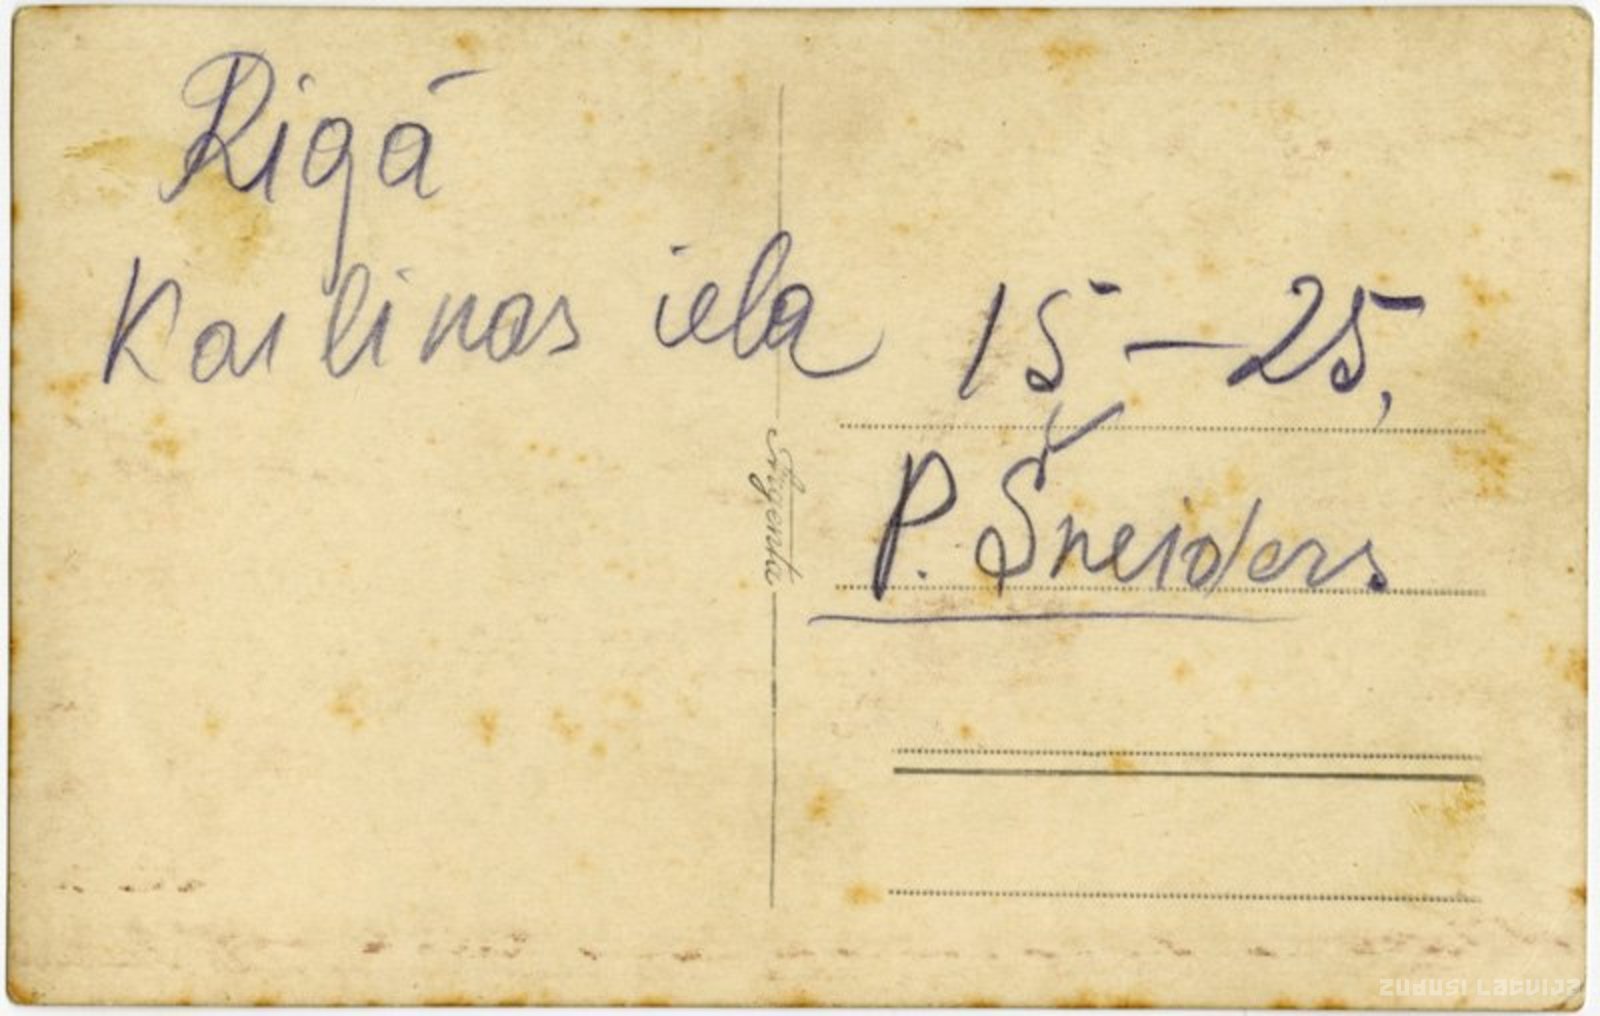 Rigā
Karlinas iela 15-25,
P. Šneiders
Argenta
zudusi Latvija